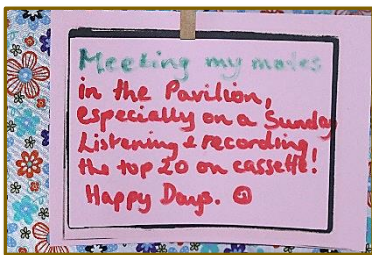 Meeting my mates
in the Pavilion,
especially on a Sunday
Listening & recording
the top 20 on cassette!
Happy Days.